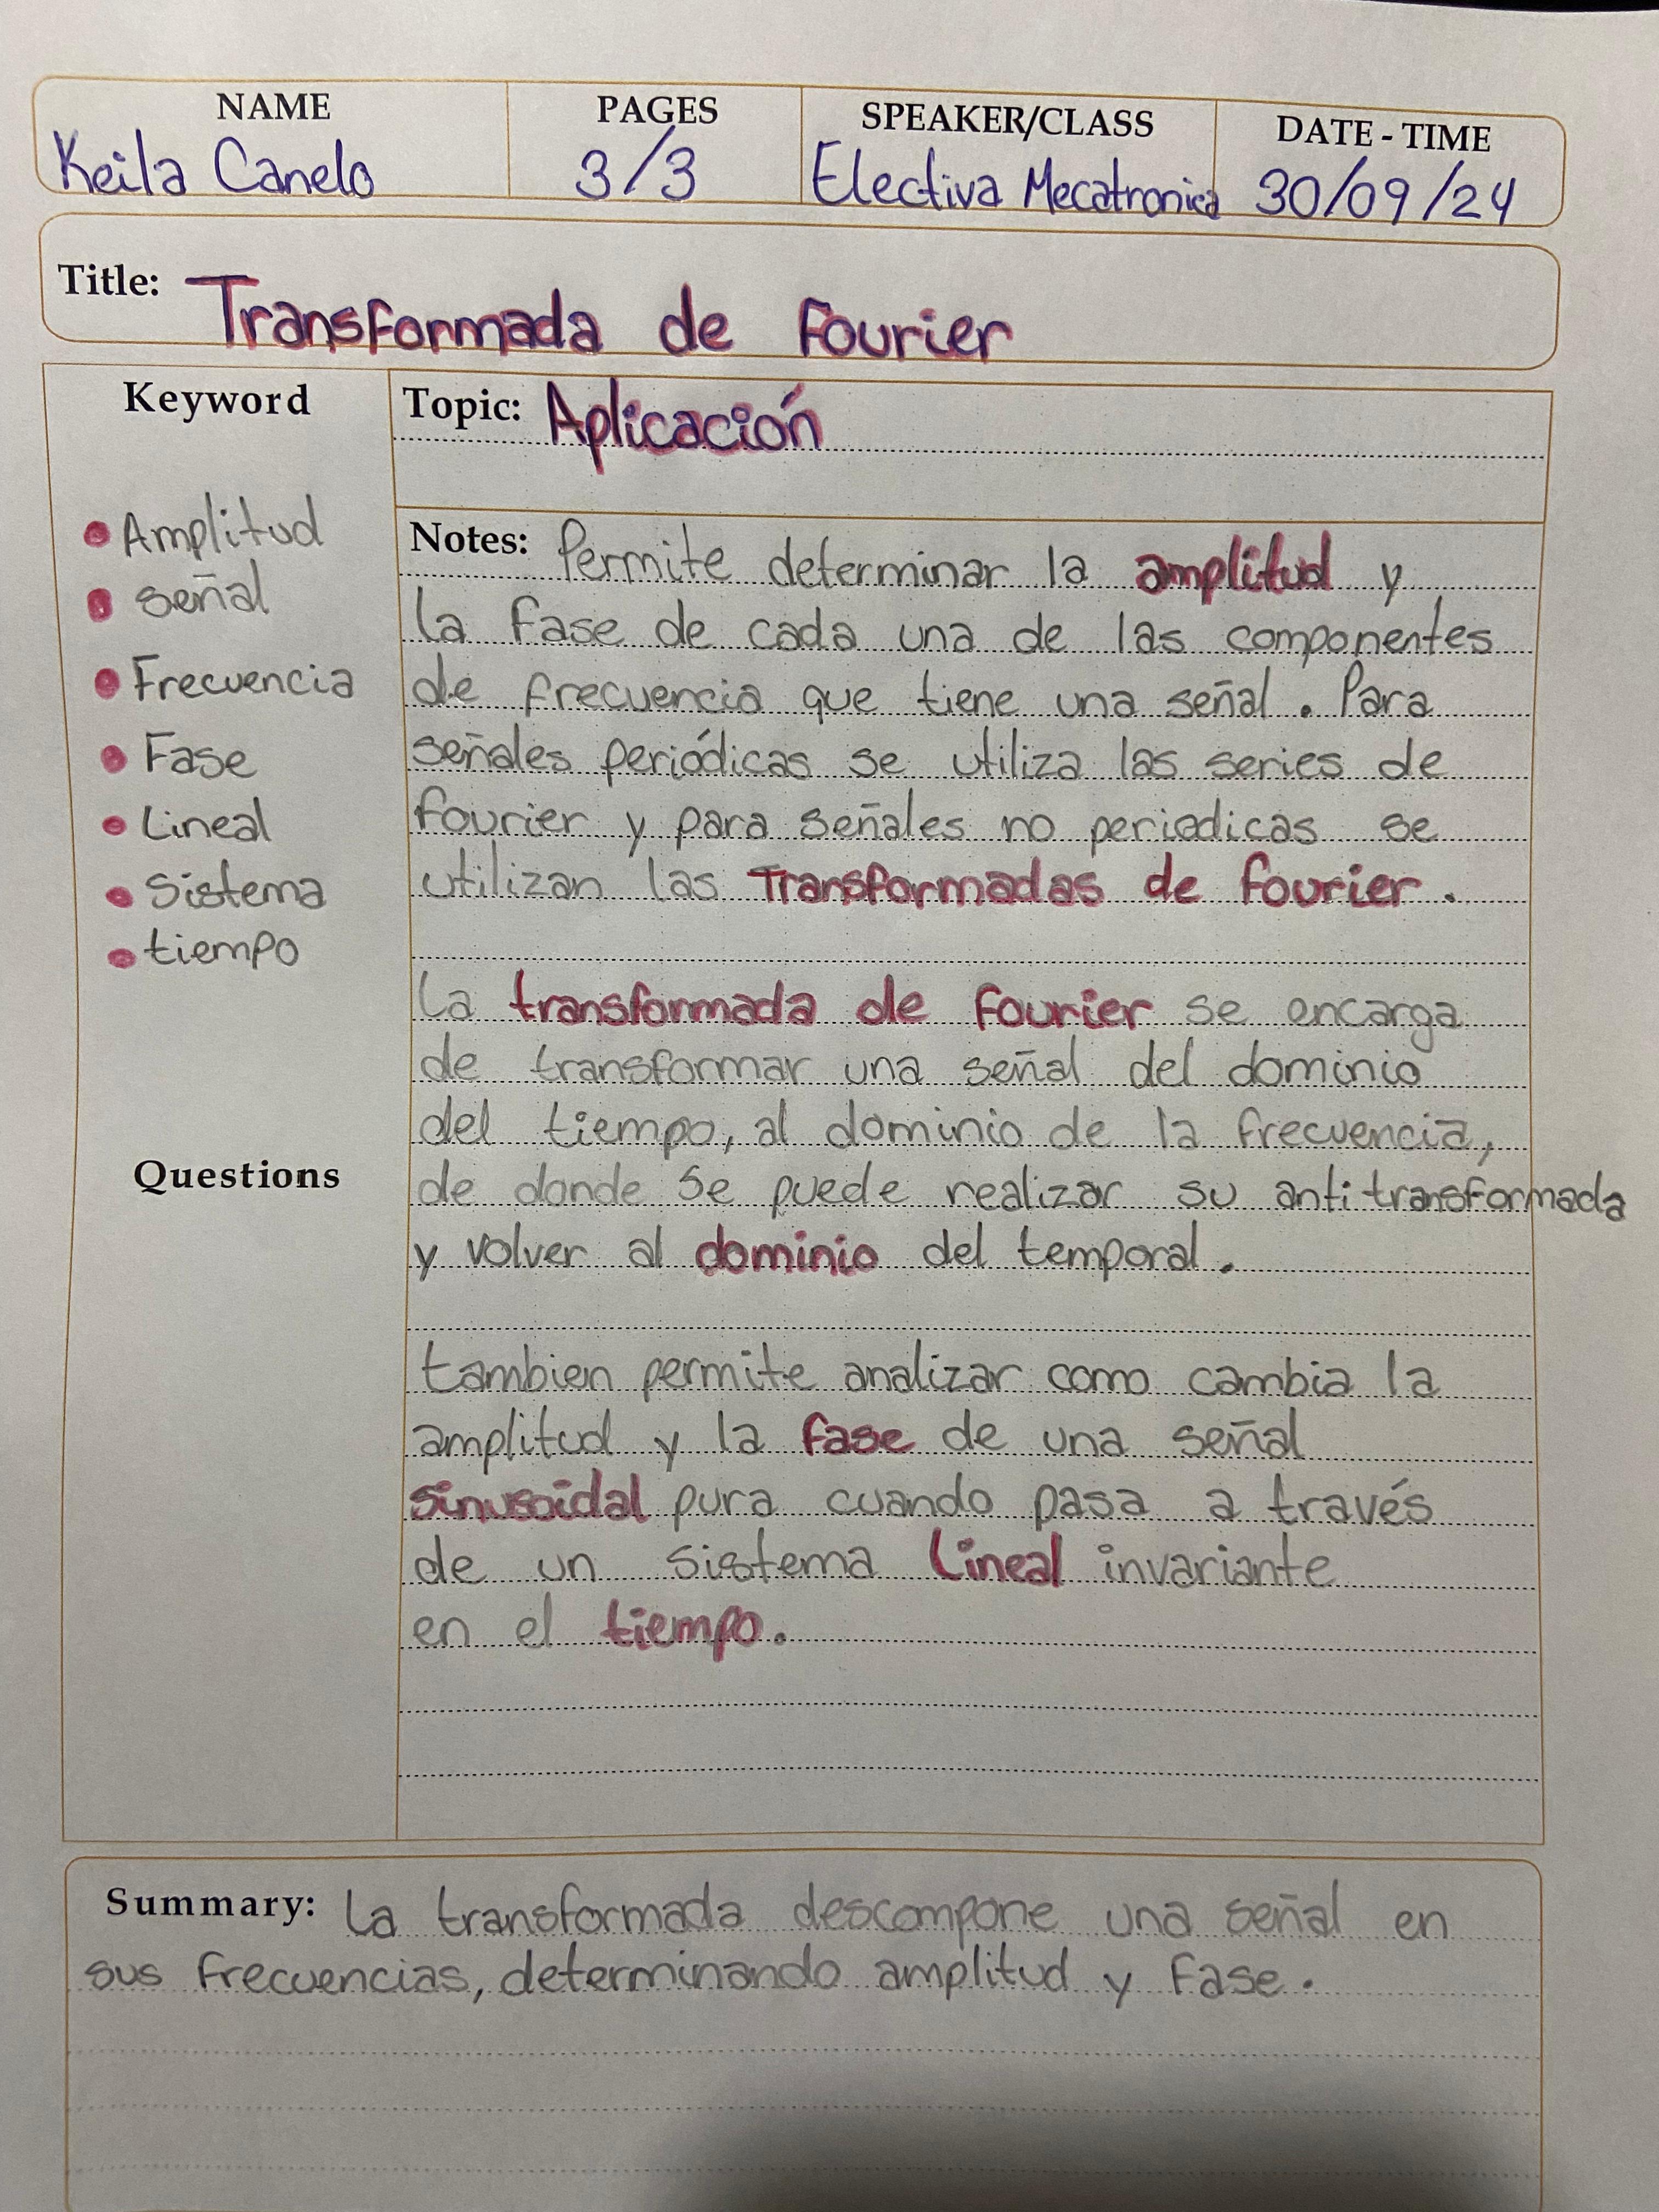 NAME PAGES SPEAKER/CLASS DATE - TIME
Keila Canelo 3/3 Electiva Mecatronica 30/09/24
Title: Transformada de Fourier
Keyword
• Amplitud
• señal
• Frecuencia
• Fase
• Lineal
• Sistema
• tiempo
Questions
Topic: Aplicación
Notes: Permite determinar la amplitud y
la fase de cada una de las componentes
de frecuencia que tiene una señal. Para
señales periódicas se utiliza las series de
fourier y para señales no periodicas se
utilizan las Transformadas de fourier.
La transformada de fourier se encarga
de transformar una señal del dominio
del tiempo, al dominio de la frecuencia,
de donde se puede realizar su antitransformada
y volver al dominio del temporal.
tambien permite analizar como cambia la
amplitud y la fase de una señal
sinusoidal pura cuando pasa a través
de un sistema Lineal invariante
en el tiempo.
Summary: La transformada descompone una señal en
sus frecuencias, determinando amplitud y fase.